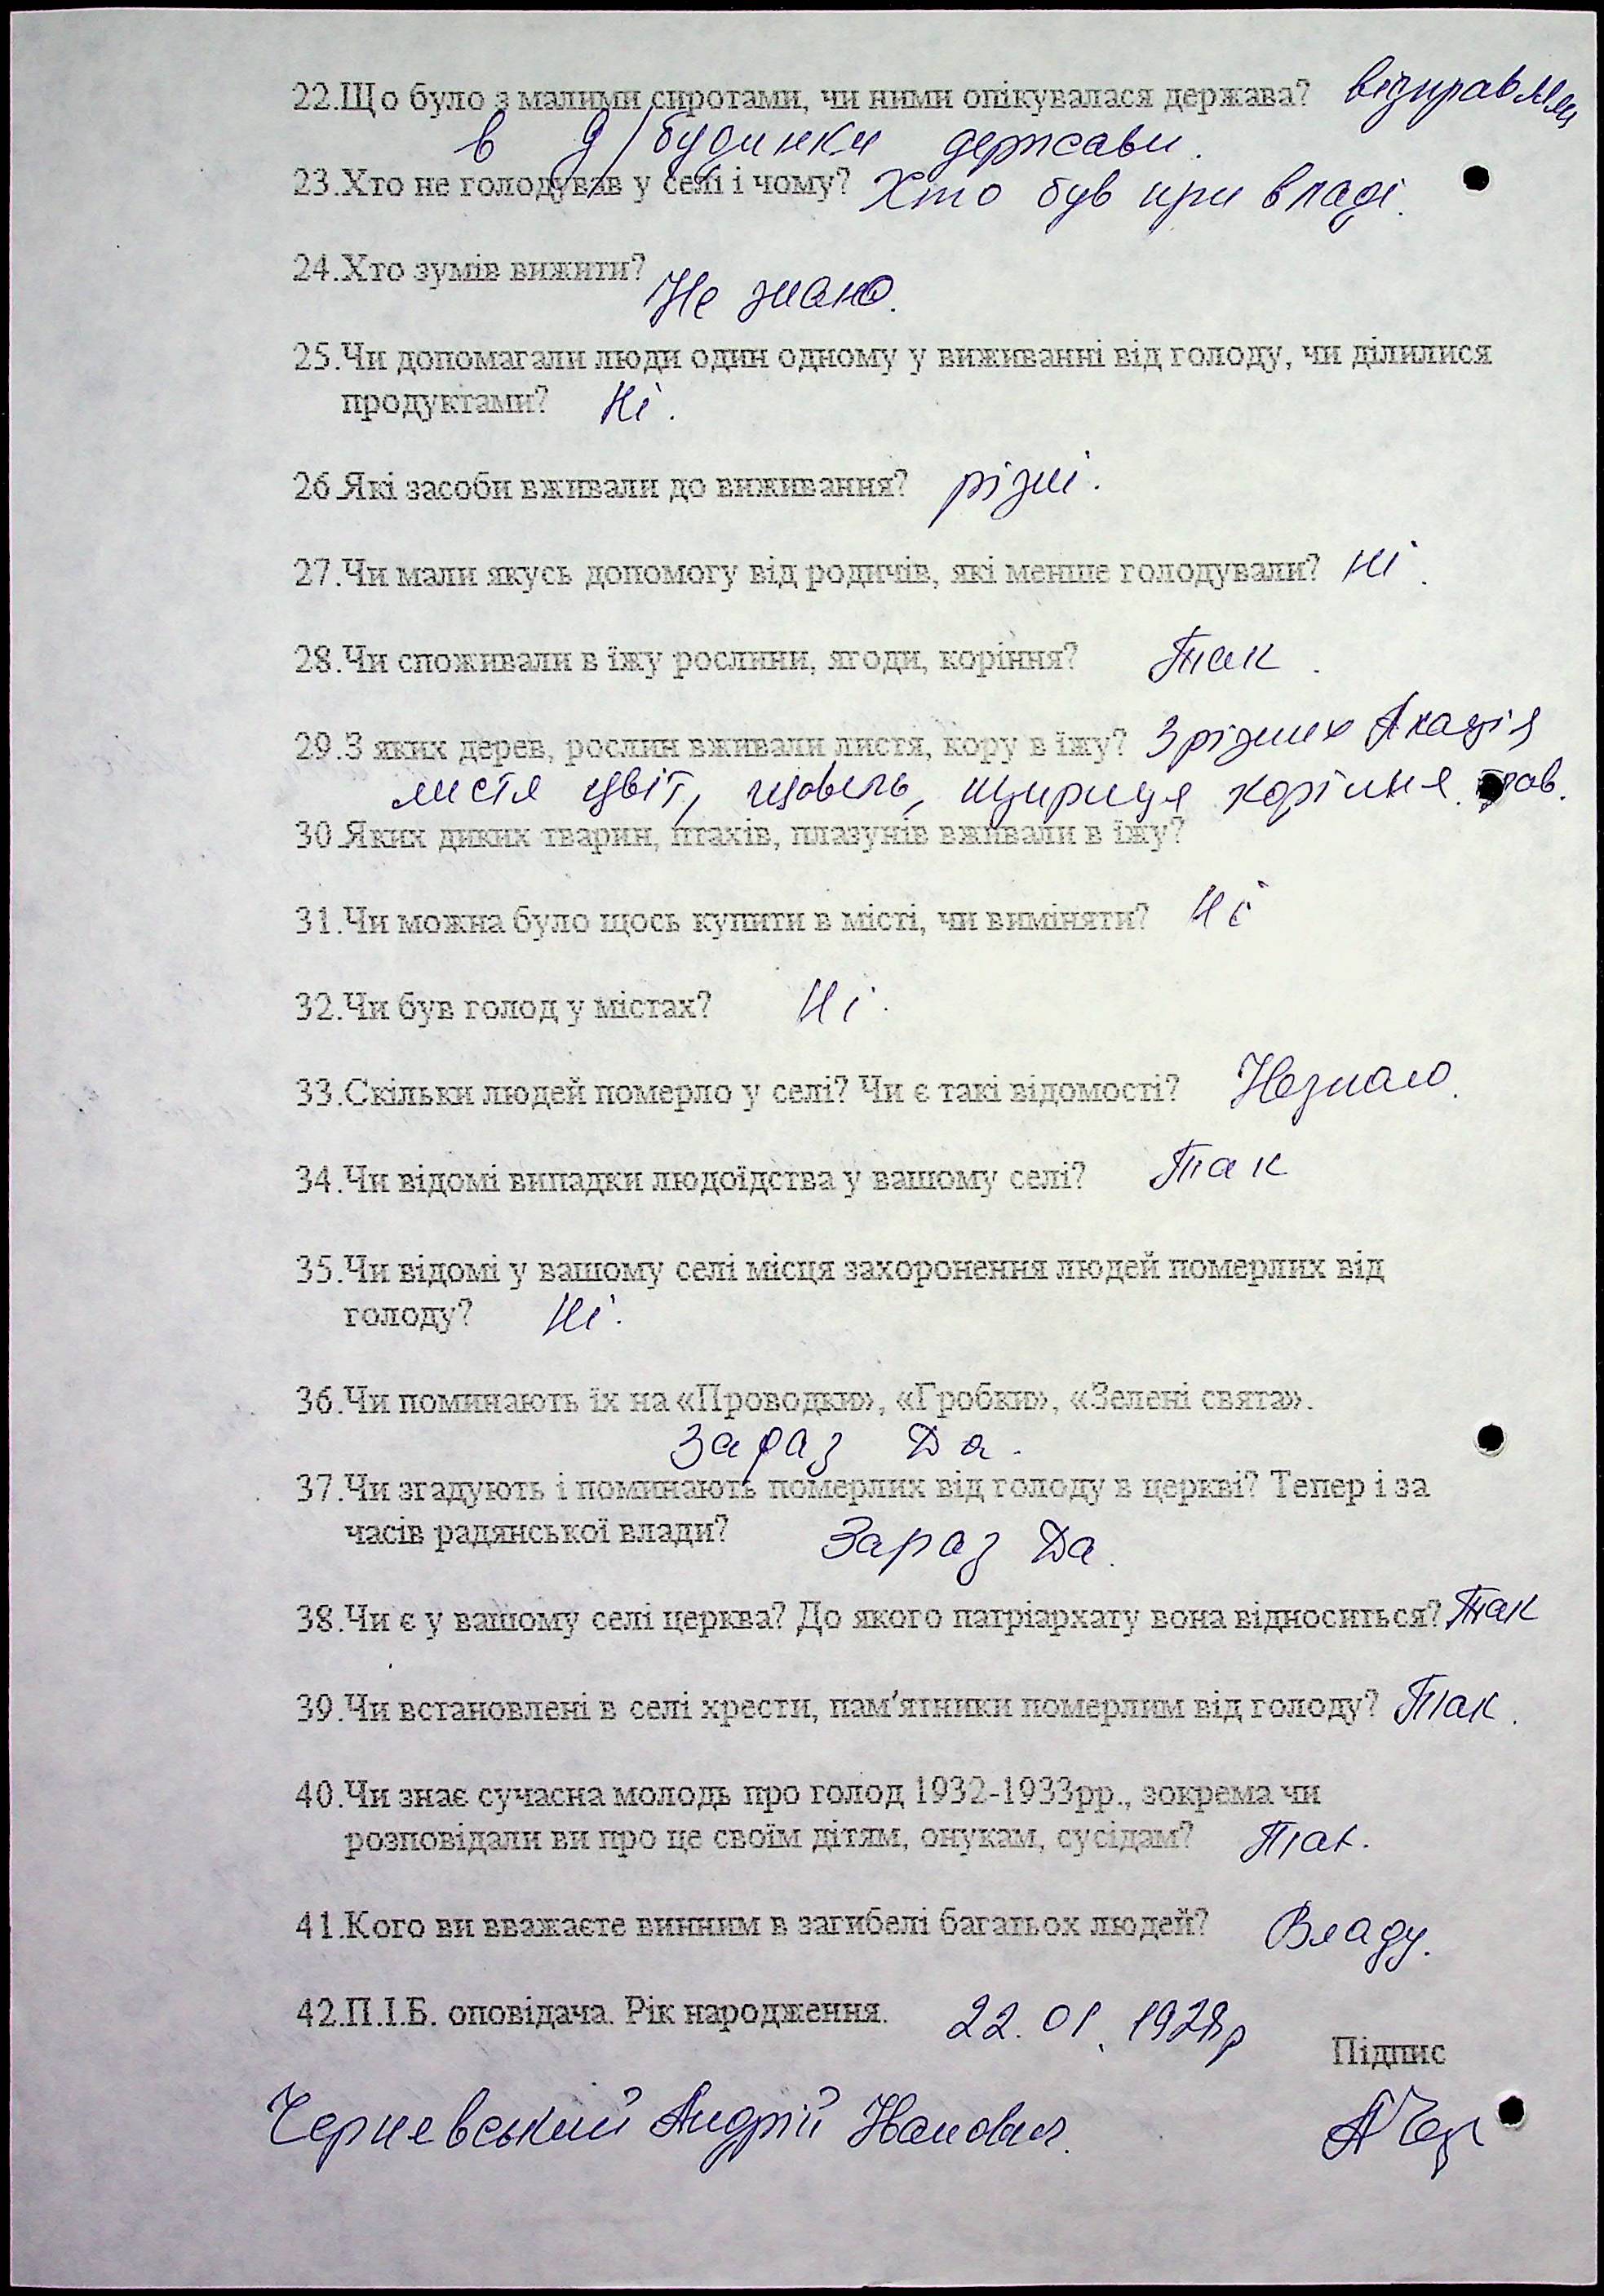 22.Що було з малими сиротами, чи ними опікувалася держава? відправляли
в д/будинки держави.
23.Хто не голодував у селі і чому? Хто був при владі.
24.Хто зумів вижити? Не знаю.
25.Чи допомагали люди один одному у виживанні від голоду, чи ділилися
продуктами? Ні.
26.Які засоби вживали до виживання? різні.
27.Чи мали якусь допомогу від родичів, які менше голодували? Ні.
28.Чи споживали в їжу рослини, ягоди, коріння? Так.
29.З яких дерев, рослин вживали листя, кору в їжу? З різних Акація
листя цвіт, щовель, щириця коріння трав.
30.Яких диких тварин, птахів, плазунів вживали в їжу?
31.Чи можна було щось купити в місті, чи виміняти? Ні
32.Чи був голод у містах? Ні.
33.Скільки людей померло у селі? Чи є такі відомості? Незнаю.
34.Чи відомі випадки людоїдства у вашому селі? Так
35.Чи відомі у вашому селі місця захоронення людей померлих від
голоду? Ні.
36.Чи поминають їх на «Проводки», «Гробки», «Зелені свята».
Зараз Да.
37.Чи згадують і поминають померлих від голоду в церкві? Тепер і за
часів радянської влади? Зараз Да.
38.Чи є у вашому селі церква? До якого патріархату вона відноситься? Так
39.Чи встановлені в селі хрести, пам'ятники померлим від голоду? Так.
40.Чи знає сучасна молодь про голод 1932-1933рр., зокрема чи
розповідали ви про це своїм дітям, онукам, сусідам? Так.
41.Кого ви вважаєте винним в загибелі багатьох людей? Владу.
42.П.І.Б. оповідача. Рік народження. 22.01.1928р
Підпис
Черневський Андрій Іванович.